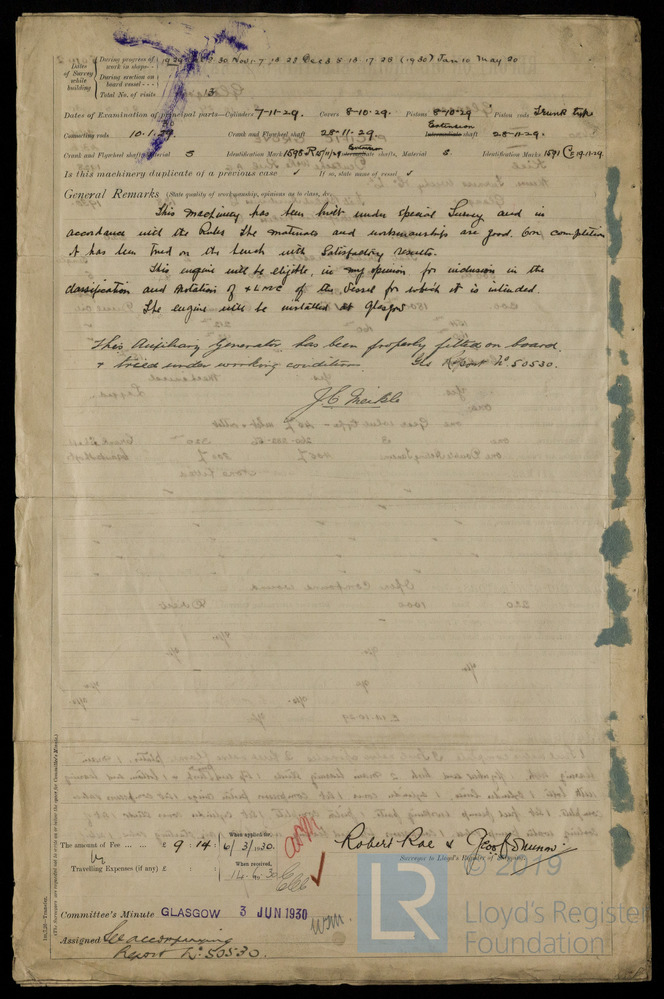 Dates of Survey while building
During progress of work in shops - - 1929 30 Nov 1. 7. 18 23 Dec 3 5 13 17 28 (1930) Jan 10 May 20
During erection on board vessel - - -
Total No. of visits 13
Dates of Examination of principal parts—Cylinders 7-11-29. Covers 8-10-29. Pistons 8-10-29 Piston rods Trunk type
Connecting rods 10.1.29. Crank and Flywheel shaft 28-11-29. Extension Intermediate shaft 28-11-29.
Crank and Flywheel shafts, Material S Identification Mark 1595 R 15/11/29 Extension Intermediate shafts, Material S. Identification Marks 1591 19.11.29.
Is this machinery duplicate of a previous case ✓ If so, state name of vessel ✓
General Remarks (State quality of workmanship, opinions as to class, &c.
This machinery has been built under Special Survey and in
accordance with the Rules The materials and workmanship are good. On completion
it has been tried on the bench with Satisfactory results.
This engine will be eligible, in my opinion for inclusion in the
classification and Notation of + LMC of the Vessel for which it is intended.
The engine will be installed at Glasgow
This Auxiliary Generator has been properly fitted on board
& tried under working conditions. Gls Report No. 50530.
J C Meikle
The amount of Fee ... ... £ 9 : 14 : When applied for, 6/3/1930.
Travelling Expenses (if any) £ : : When received, 14.6.30
Robert Rae & Geo. J. Munro
Surveyor to Lloyd's Register of Shipping.
Committee's Minute GLASGOW 3 JUN 1930
Assigned See accompanying
Report No. 50530.
© 2019
LR
Lloyd's Register
Foundation